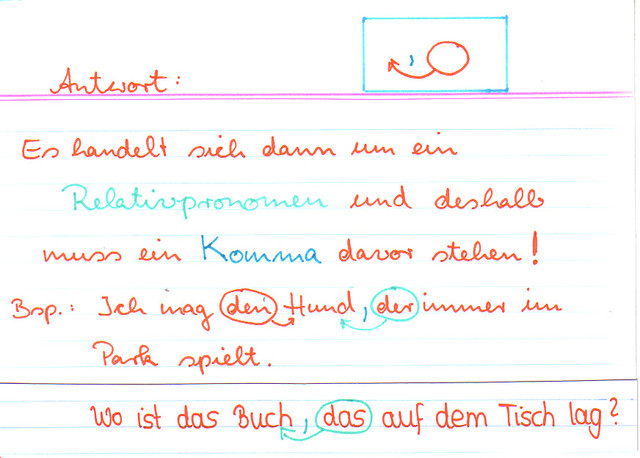 Antwort:
Es handelt sich dann um ein
Relativpronomen und deshalb
muss ein Komma davor stehen!
Bsp.: Ich mag den Hund, der immer im
Park spielt.
Wo ist das Buch, das auf dem Tisch lag?